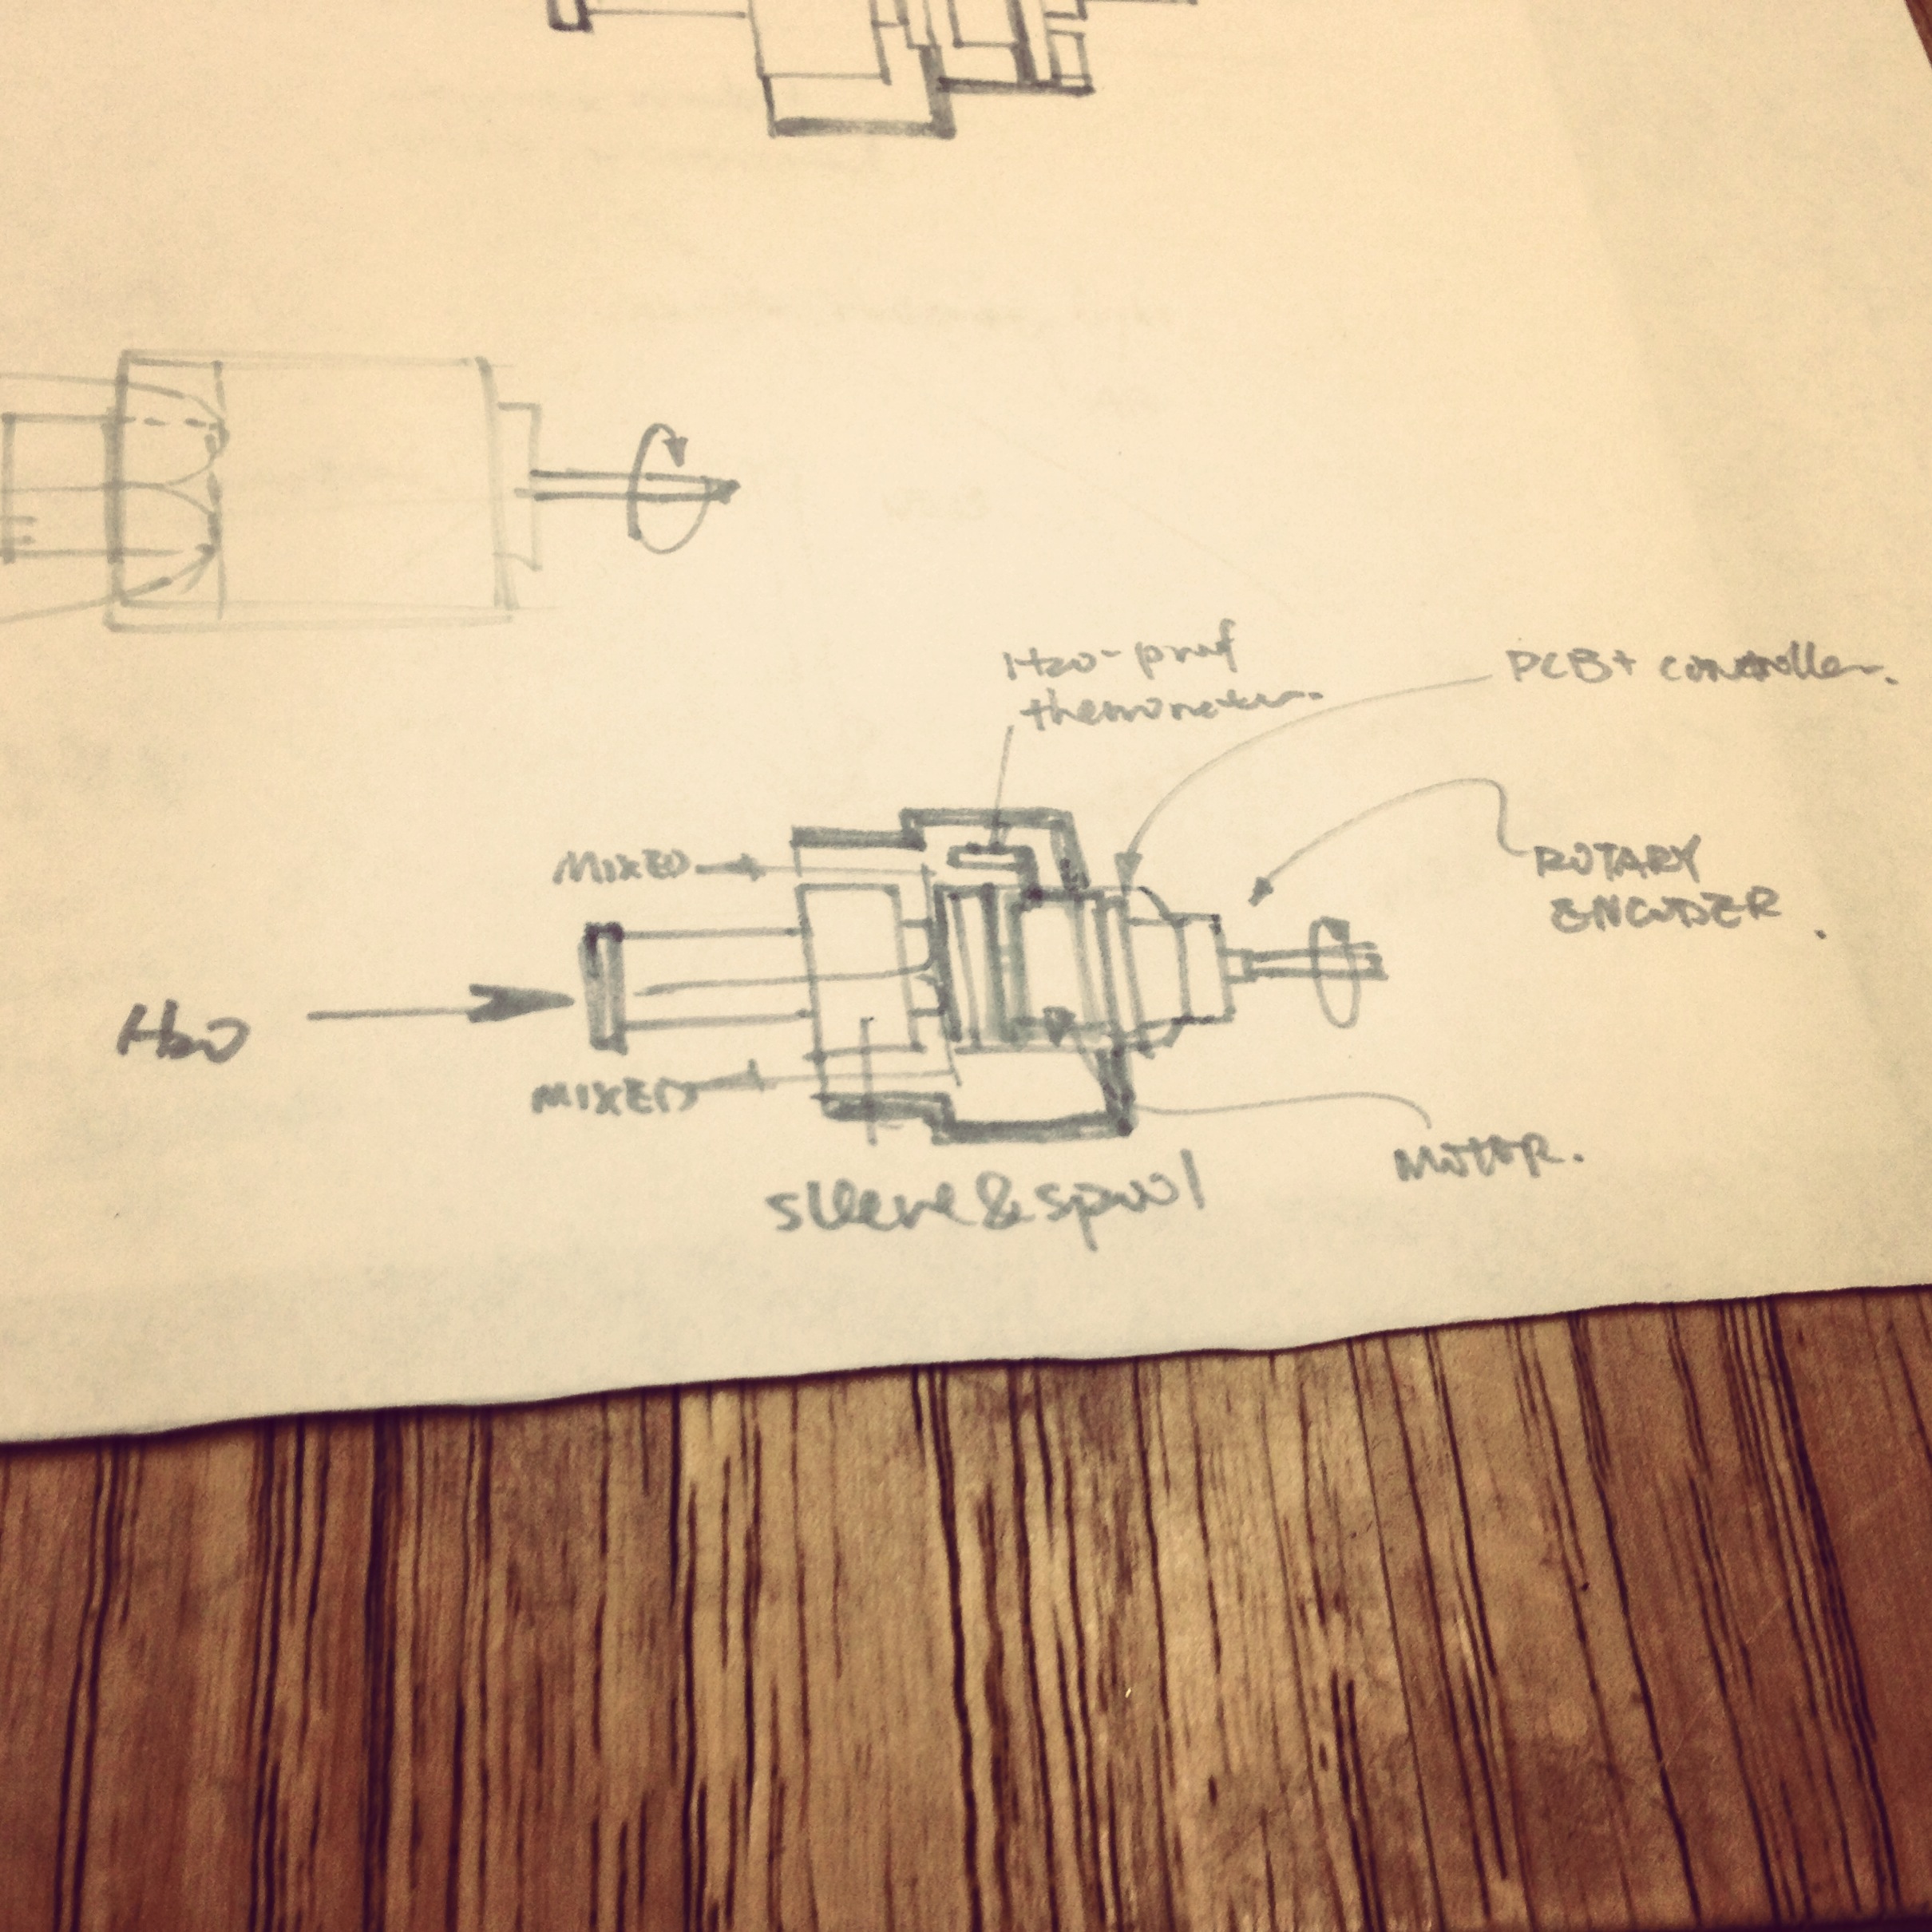 H2O-proof
thermometer.
PCB+ controller.
MIXED
ROTARY
ENCODER
H2O
MIXED
MOTOR.
sleeve & spool